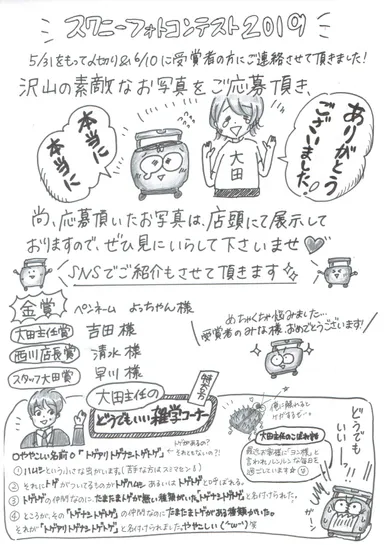 スワニーフォトコンテスト2019
5/31をもって〆切り&6/10に受賞者の方にご連絡させて頂きました!
沢山の素敵なお写真をご応募頂き、
本当に
本当に
大田
ありがとう
ございました!
尚、応募頂いたお写真は、店頭にて展示して
おりますので、ぜひ見にいらして下さいませ♡
SNSでご紹介もさせて頂きます
金賞 ペンネーム よっちゃん様
大田主任賞 吉田 様
西川店長賞 清水 様
スタッフ大田賞 早川 様
めちゃくちゃ悩みました…
受賞者のみな様、おめでとうございます!
大田主任の
どうでもいい雑学コーナー
特大
ややこしい名前の『トゲアリトゲナシトゲトゲ』
トゲがあるの?
それともないの?!
① ハムシという小さな虫がいます(苦手な方はスミマセン)
② それにトゲがついてるものがトゲハムシ あるいはトゲトゲと呼ばれる。
③ トゲトゲの仲間なのに、たまたまトゲが無い種類がいた。『トゲナシトゲトゲ』と名付けられた。
④ ところが、その『トゲナシトゲトゲ』の仲間なのにたまたまトゲがある種類がいた。
それが『トゲアリトゲナシトゲトゲ』と名付けられました。ややこしい(^ω^)笑
大田主任のこぼれ話
最近お客様に「ヨン様」と
言われルンルンな毎日を
過ごしています☆
どうでも
いいーっ!!
ガーン